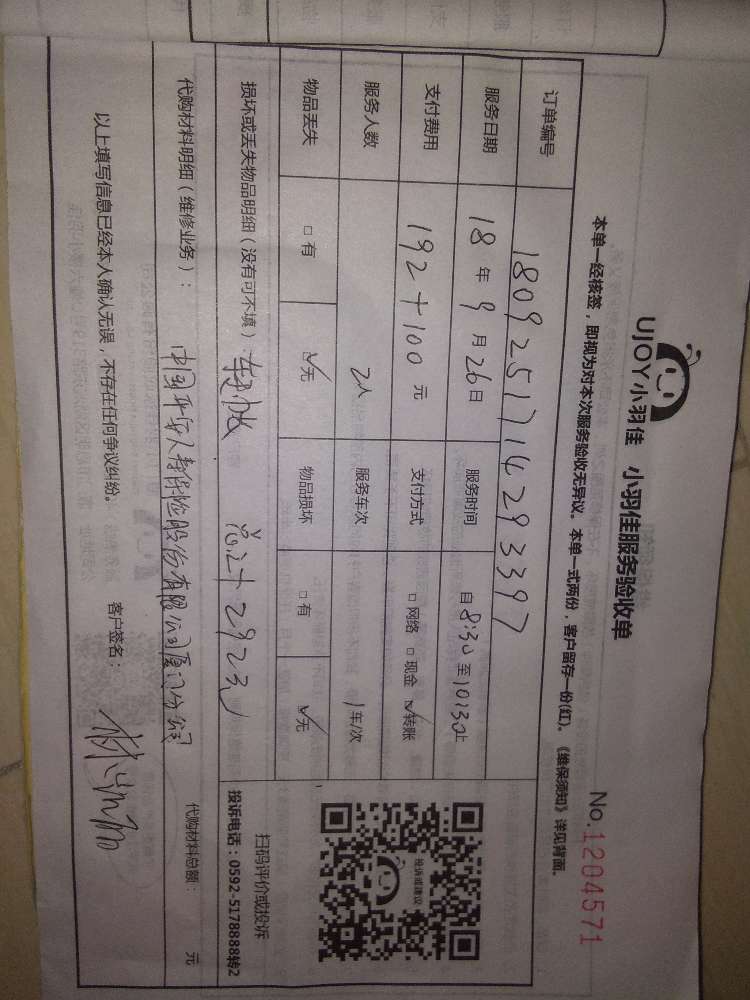 UJOY小羽佳 小羽佳服务验收单
No.1204571
本单一经核签，即视为对本次服务验收无异议。本单一式两份，客户留存一份(红)。《维保须知》详见背面。
订单编号 1809251714293397
服务日期 18年9月26日 服务时间 自8:30至10:30止
支付费用 192+100元 支付方式 □网络 □现金 ☑转账
服务人数 2人 服务车次 1车/次
物品丢失 □有 ☑无 物品损坏 □有 ☑无
投诉或建议
扫码评价或投诉
投诉电话：0592-5178888转2
损坏或丢失物品明细（没有可不填）
代购材料明细（维修业务）： 中国平安人寿保险股份有限公司厦门分公司 代购材料总额： 元
以上填写信息已经本人确认无误，不存在任何争议纠纷。 客户签名：